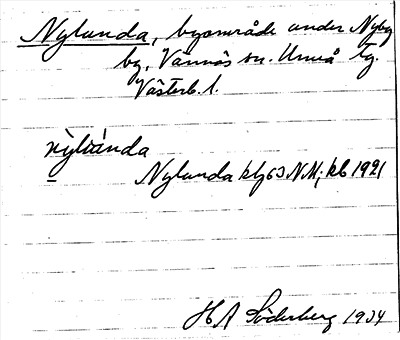 Nylunda, byområde under Nyby
by, Vännäs sn. Umeå tg.
Västerb. l.
Nylunda kly63 N.M; kb 1921
H A Söderberg 1934